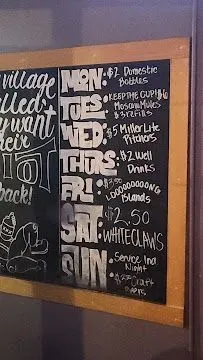 village
want
back!
MON: $2 Domestic
Bottles
TUES: KEEP THE CUP! $6
Moscow Mules
$3 Refills
WED: $5 Miller Lite
Pitchers
THURS: $2 Well
Drinks
FRI
LOOOOOOONG
Islands
SAT: $2.50
WHITECLAWS
SUN: Service Ind
Night
Craft